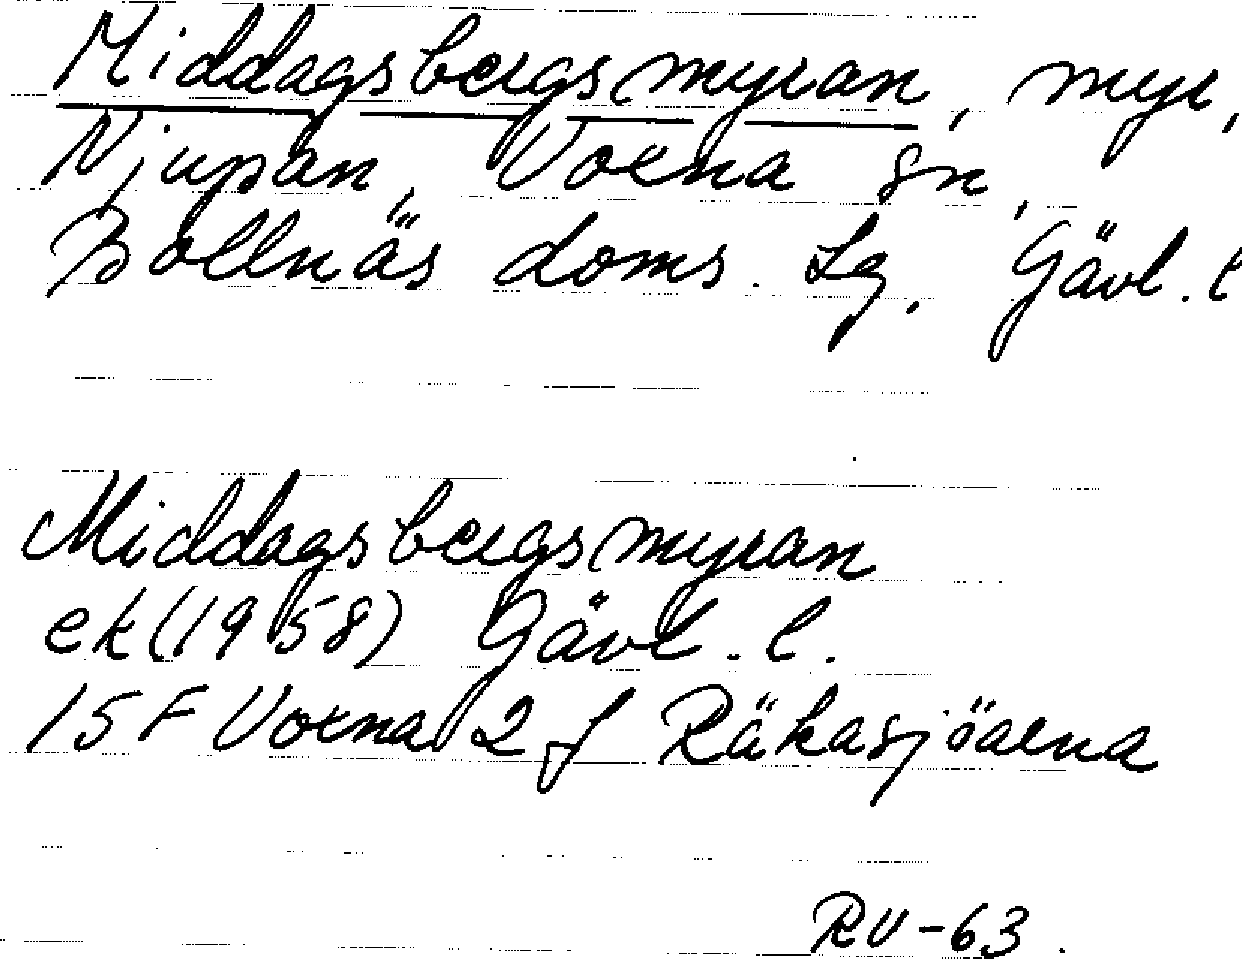 Middagsbergsmyran, myr,
Njupan, Voxna sn,
Bollnäs doms. lg, Gävl. l
Middagsbergsmyran
ek (1958) Gävl. l.
15F Voxna 2 f Räkasjöarna
RV-63.